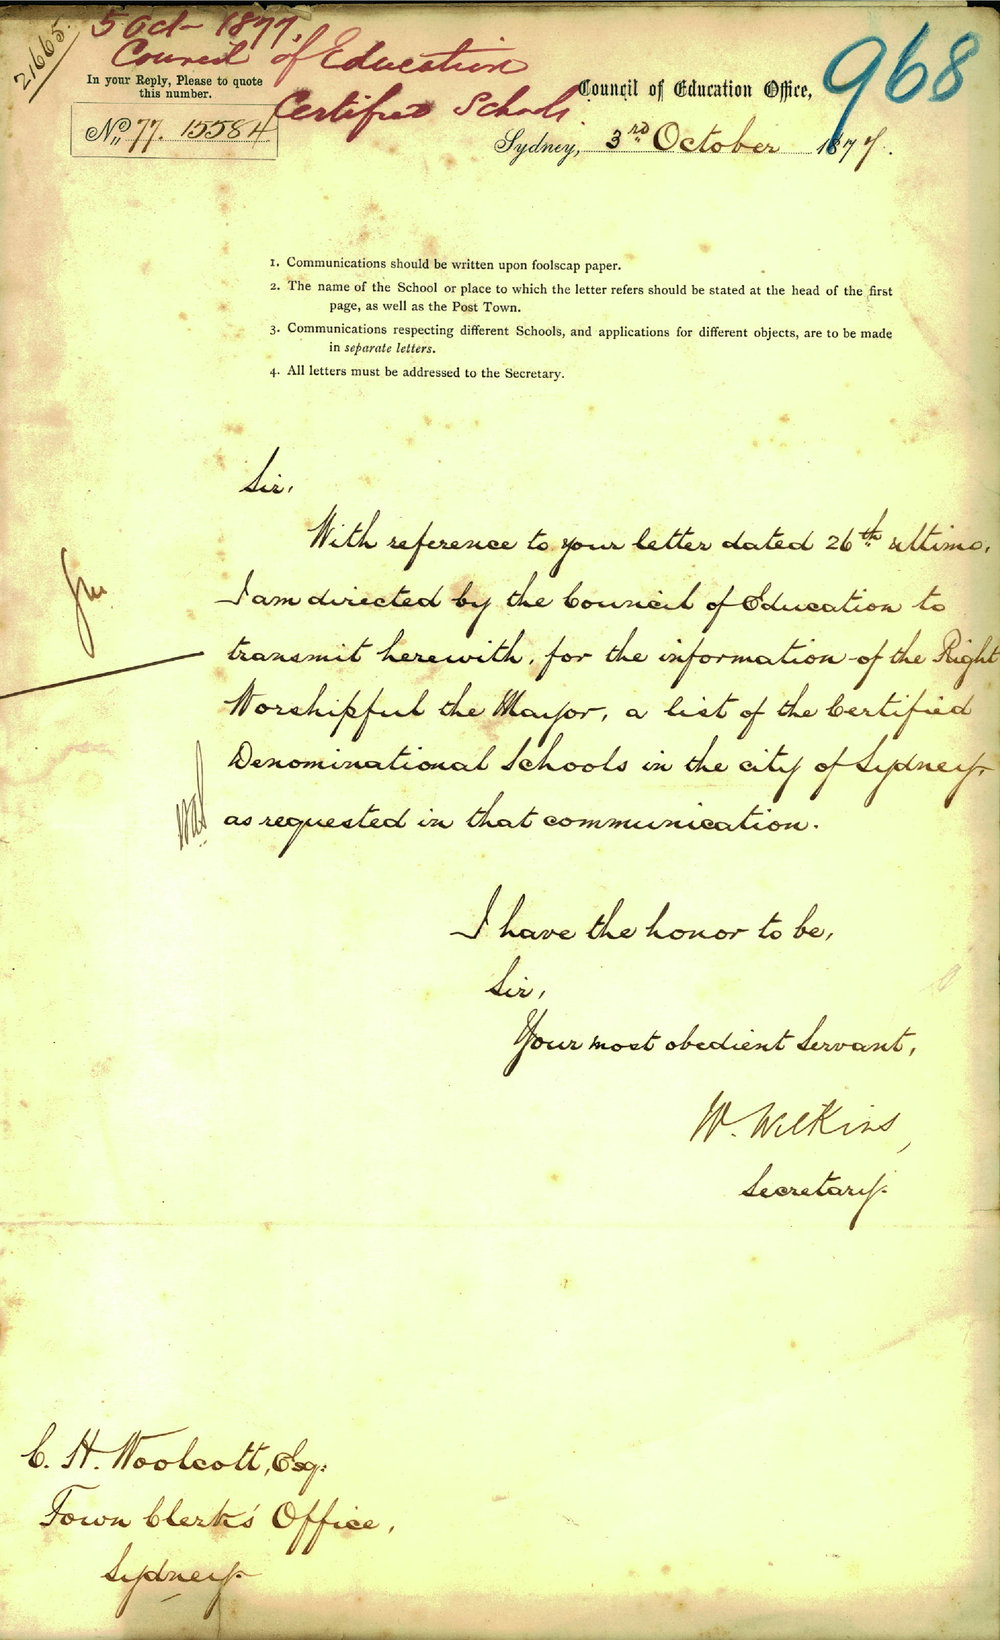 21665.
5 Oct- 1877.
Council of Education
Certified Schools.
968
In your Reply, Please to quote
this number.
No. 77. 15584
Council of Education Office,
Sydney, 3rd October 1877.
1. Communications should be written upon foolscap paper.
2. The name of the School or place to which the letter refers should be stated at the head of the first
page, as well as the Post Town.
3. Communications respecting different Schools, and applications for different objects, are to be made
in separate letters.
4. All letters must be addressed to the Secretary.
Sir,
With reference to your letter dated 26th ultimo,
I am directed by the Council of Education to
transmit herewith, for the information of the Right
Worshipful the Mayor, a list of the Certified
Denominational Schools in the city of Sydney
as requested in that communication.
I have the honor to be,
Sir,
Your most obedient Servant,
W. Wilkins,
Secretary.
C. H. Woolcott, Esq:
Town Clerk's Office,
Sydney